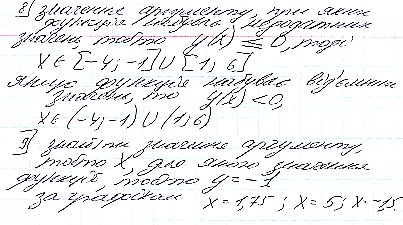 8) значення аргументу, при яких
функція набуває недодатних
значень тобто y(x) ≤ 0, тоді
x ∈ [-4; -1] ∪ [1; 6]
якщо функція набуває від'ємних
значень, то y(x) < 0,
x ∈ (-4; -1) ∪ (1; 6)
9) знайти значення аргументу,
тобто x, для якого значення
функції, тобто y = -1
за графіком x = 1,75; x = 5; x = -1,5.